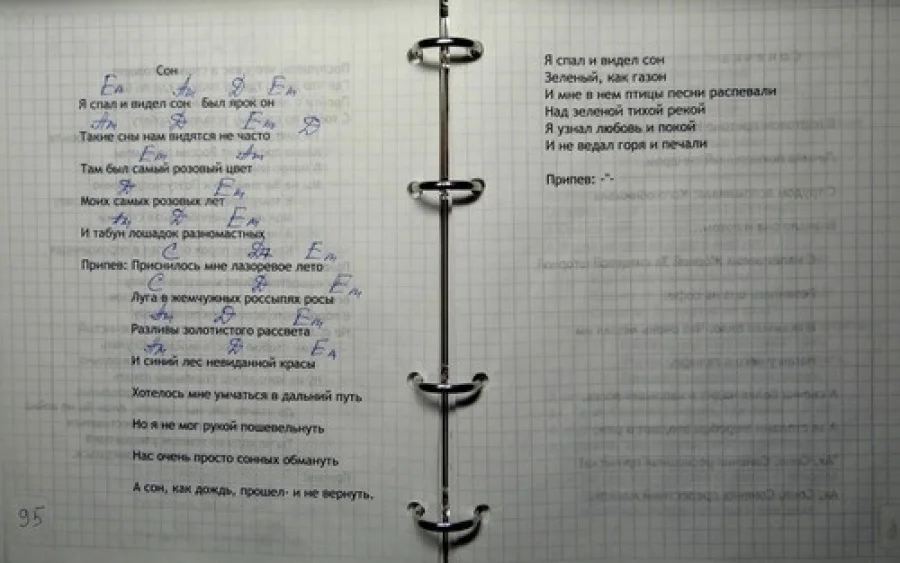 Сон
Em Am D Em
Я спал и видел сон Был ярок он
Am D Em D
Такие сны нам видятся не часто
Em Am
Там был самый розовый цвет
D Em
Моих самых розовых лет
Am D Em
И табун лошадок разномастных
C Em
Припев: Приснилось мне лазоревое лето
C D Em
Луга в жемчужных россыпях росы
Am D Em
Разливы золотистого рассвета
Am D Em
И синий лес невиданной красы
Хотелось мне умчаться в дальний путь
Но я не мог рукой пошевельнуть
Нас очень просто сонных обмануть
А сон, как дождь, прошел- и не вернуть.
95
Я спал и видел сон
Зеленый, как газон
И мне в нем птицы песни распевали
Над зеленой тихой рекой
Я узнал любовь и покой
И не ведал горя и печали
Припев: -"-